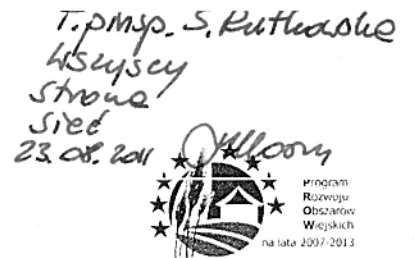 T. pmsp. S. Rutkowska
Wszyscy
Strona
Sieć
23.08.2011
Program
Rozwoju
Obszarów
Wiejskich
na lata 2007-2013